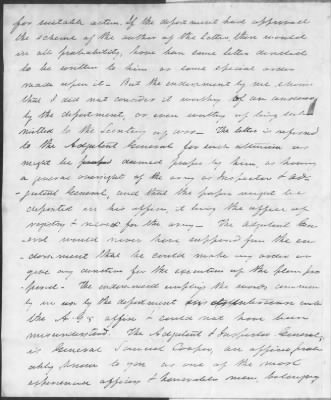 for suitable action. If the department had approved
the scheme of the author of the letter, there would
in all probability, have been some letter directed
to be written to him or some special order
made upon it - But the endorsement by me shows
that I did not consider it worthy of an answer
by the department, or even worthy of being sub-
mitted to the Secretary of War - The letter is referred
to the Adjutant General for such attention as
might be deemed proper by him, as having
a general oversight of the army as Inspector & Ad-
jutant General, and that the paper might be
deposited in his office, it being the office of
registry & record for the army - The Adjutant Gen-
eral would never have supposed from the en-
dorsement that he could make any order or
give any direction for the execution of the plan pro-
posed - The endorsement employs the words common-
ly in use by the department
the A. G's office & could not have been
misunderstood. The Adjutant & Inspector General,
is General Samuel Cooper, an officer, prob-
ably known to you as one of the most
experienced officers & honorable men, belonging